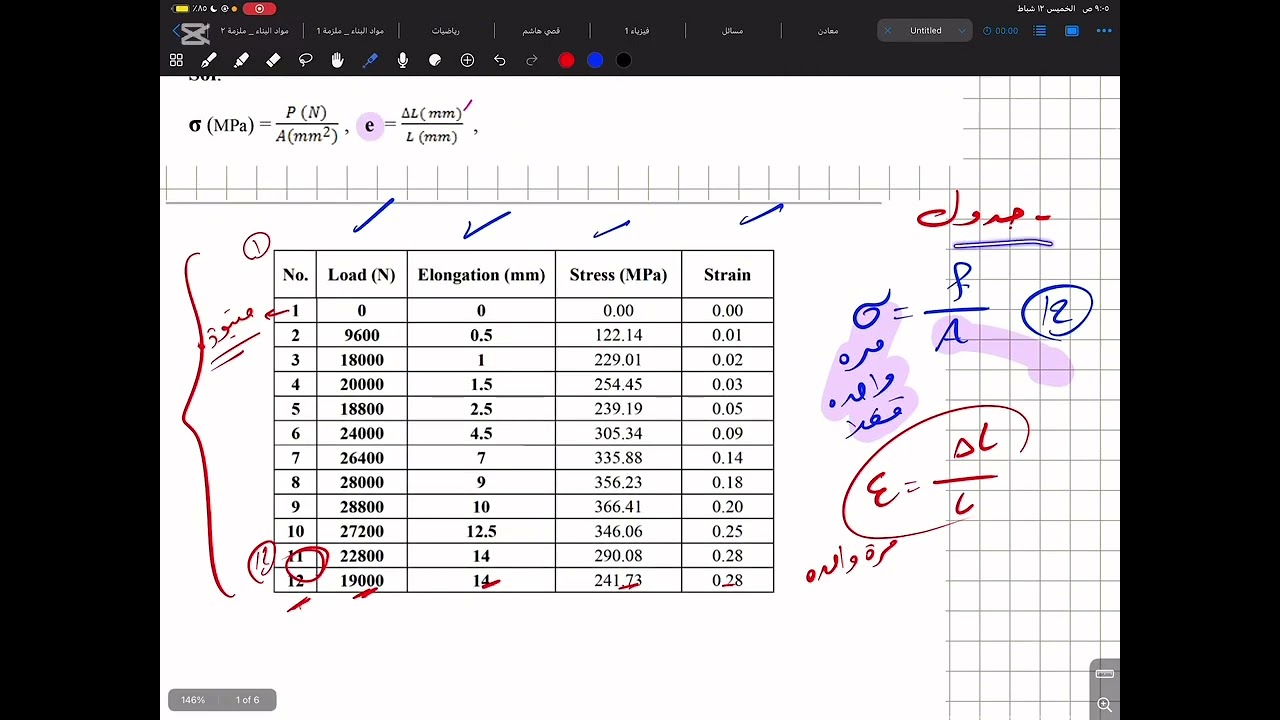 ٩:٠٥ ص الخميس ١٢ شباط
٪٨٥
مواد البناء _ ملزمة ٢
مواد البناء _ ملزمة 1
رياضيات
قصي هاشم
فيزياء 1
مسائل
معادن
Untitled
00:00
Sol:
σ (MPa) = P (N) / A(mm²) , e = ΔL( mm) / L (mm) ,
- جدول
1
No. Load (N) Elongation (mm) Stress (MPa) Strain
1 0 0 0.00 0.00
2 9600 0.5 122.14 0.01
3 18000 1 229.01 0.02
4 20000 1.5 254.45 0.03
5 18800 2.5 239.19 0.05
6 24000 4.5 305.34 0.09
7 26400 7 335.88 0.14
8 28000 9 356.23 0.18
9 28800 10 366.41 0.20
10 27200 12.5 346.06 0.25
11 22800 14 290.08 0.28
12 19000 14 241.73 0.28
σ = P / A
مره
واحده
فقط
ε = ΔL / L
مرة واحده
146% 1 of 6